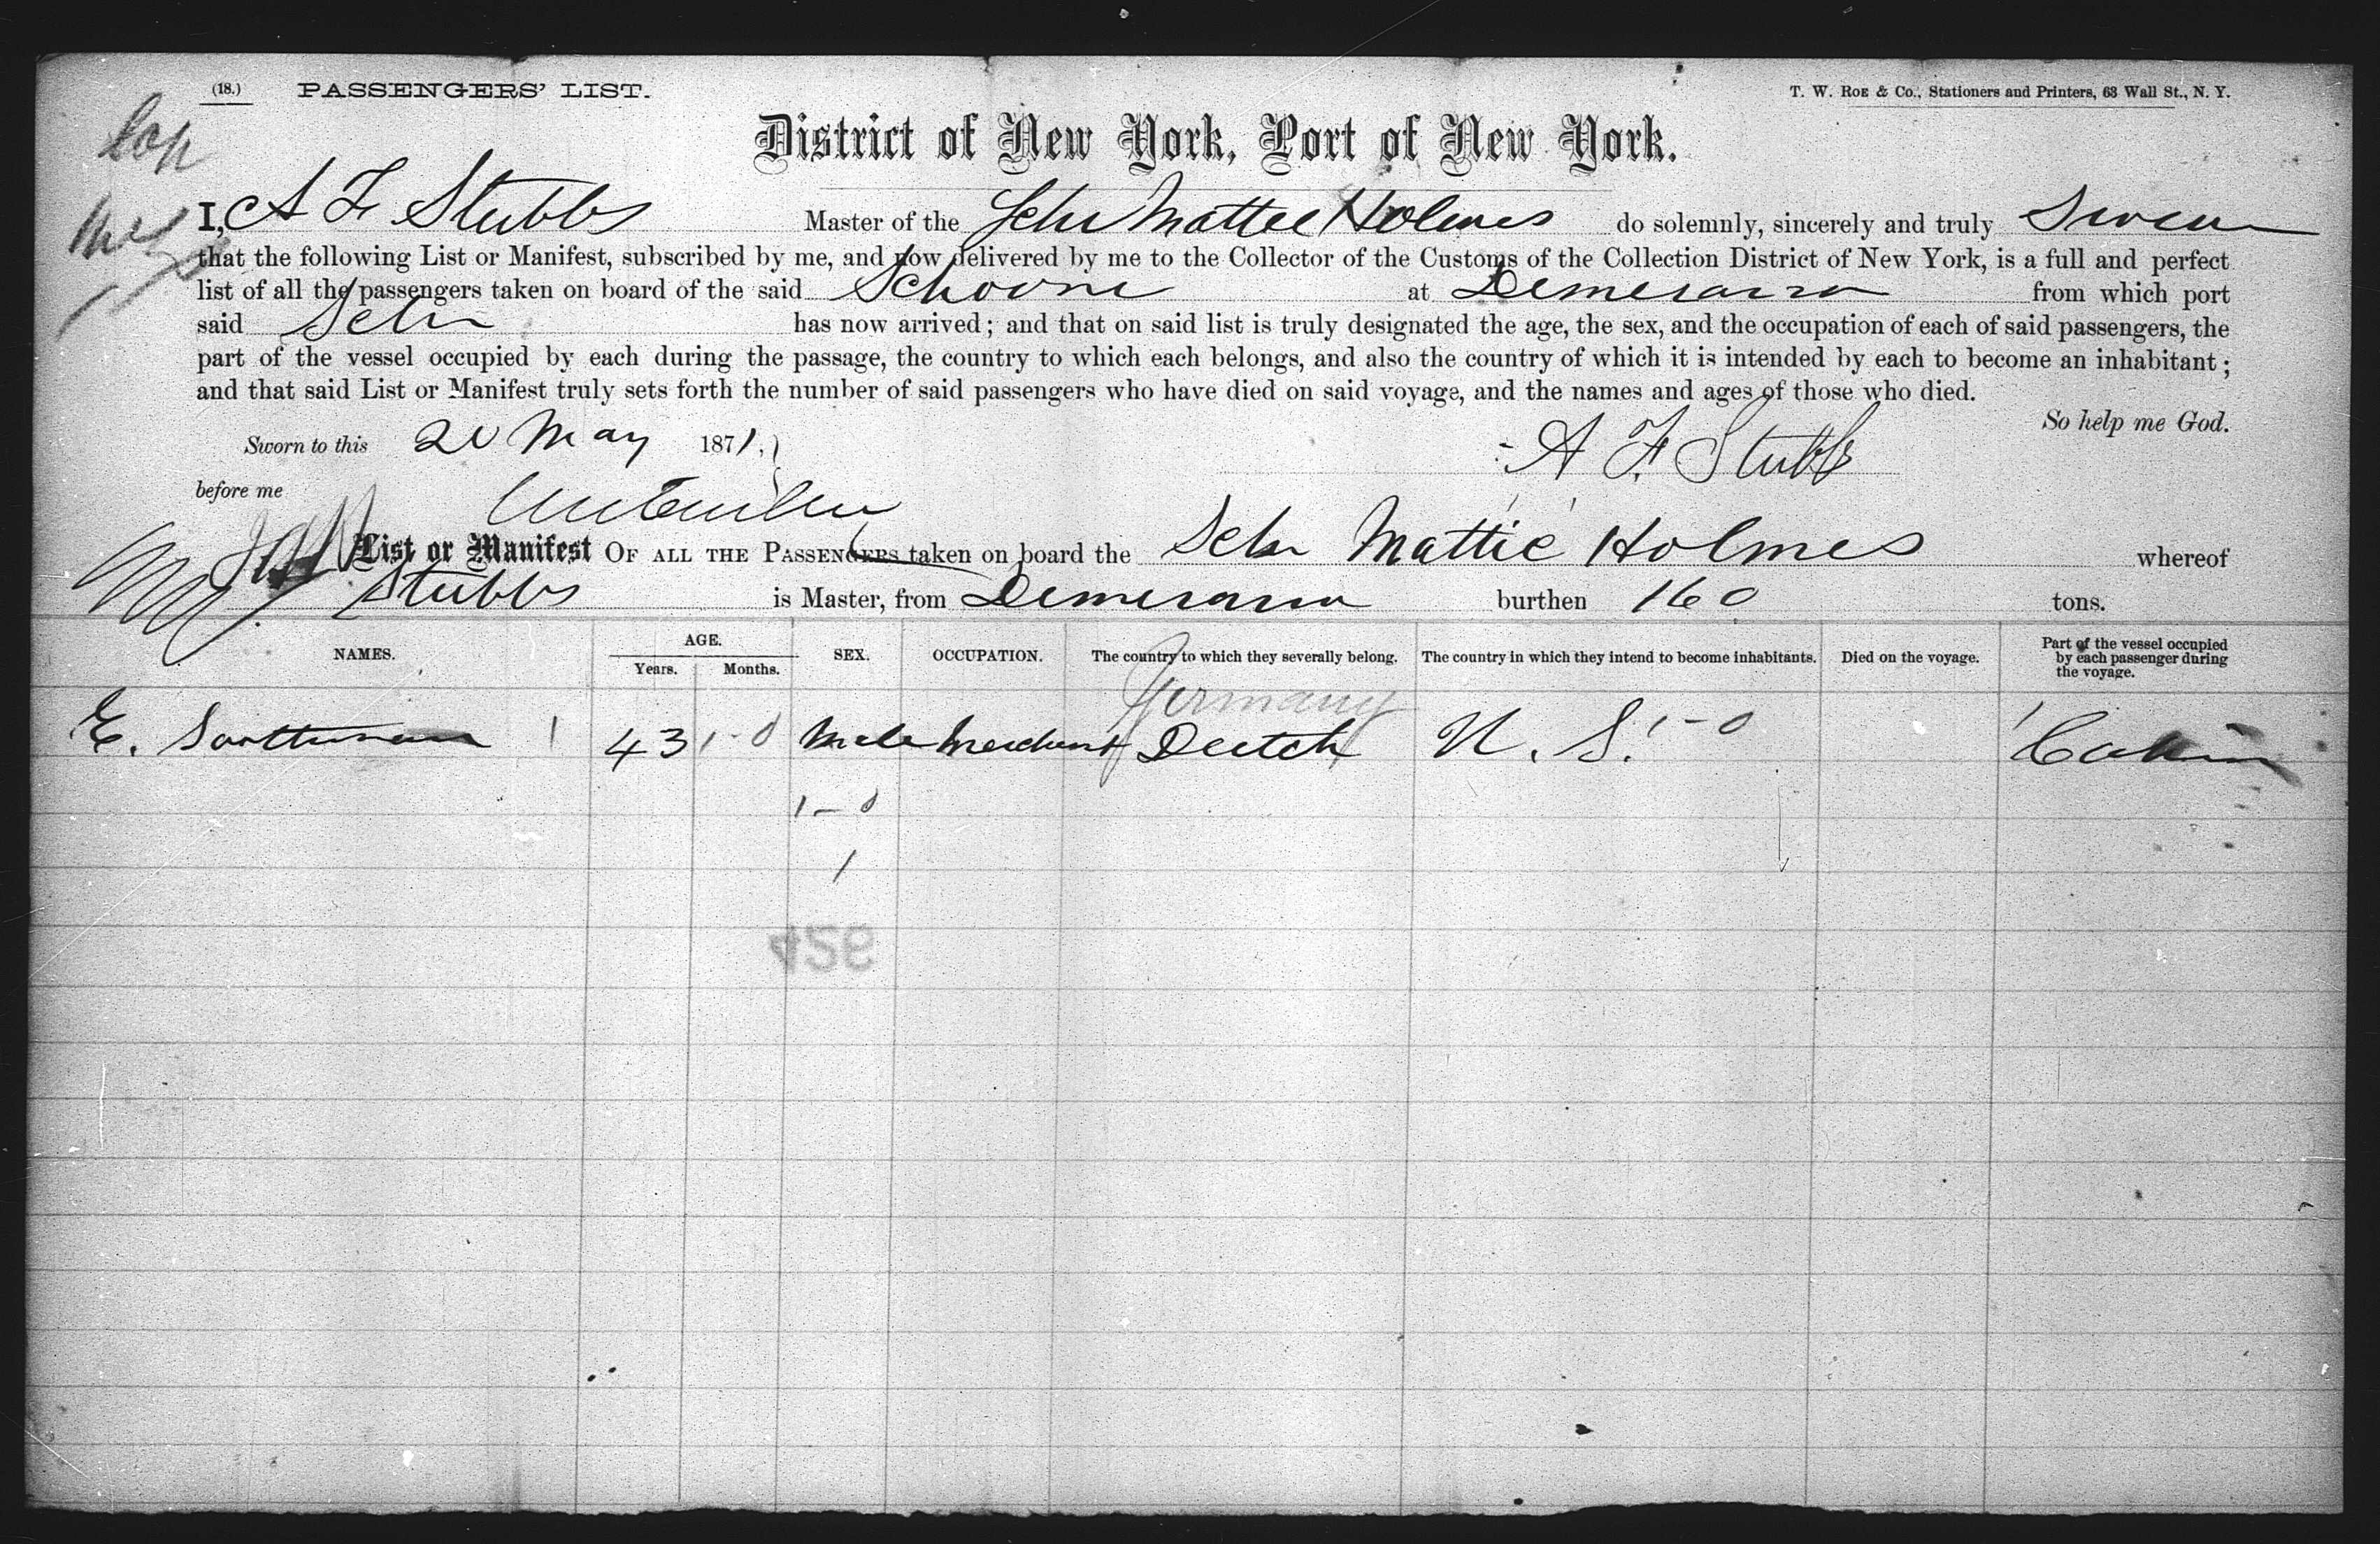 (18.) PASSENGERS' LIST. T. W. Roe & Co., Stationers and Printers, 63 Wall St., N. Y.
District of New York, Port of New York.
I, A F Stubbs Master of the Schr Mattee Holmes do solemnly, sincerely and truly Swear
that the following List or Manifest, subscribed by me, and now delivered by me to the Collector of the Customs of the Collection District of New York, is a full and perfect
list of all the passengers taken on board of the said Schoone at Demerara from which port
said Schr has now arrived; and that on said list is truly designated the age, the sex, and the occupation of each of said passengers, the
part of the vessel occupied by each during the passage, the country to which each belongs, and also the country of which it is intended by each to become an inhabitant;
and that said List or Manifest truly sets forth the number of said passengers who have died on said voyage, and the names and ages of those who died.
So help me God.
Sworn to this 20 May 1871. A F Stubbs
before me
List or Manifest OF ALL THE PASSENGERS taken on board the Schr Mattie Holmes whereof
Stubbs is Master, from Demerara burthen 160 tons.
NAMES. AGE. Years. Months. SEX. OCCUPATION. The country to which they severally belong. The country in which they intend to become inhabitants. Died on the voyage. Part of the vessel occupied by each passenger during the voyage.
Germany
E. 1 43 1-0 Male Merchant Deutch U. S. 1-0 Cabin
1-0
1